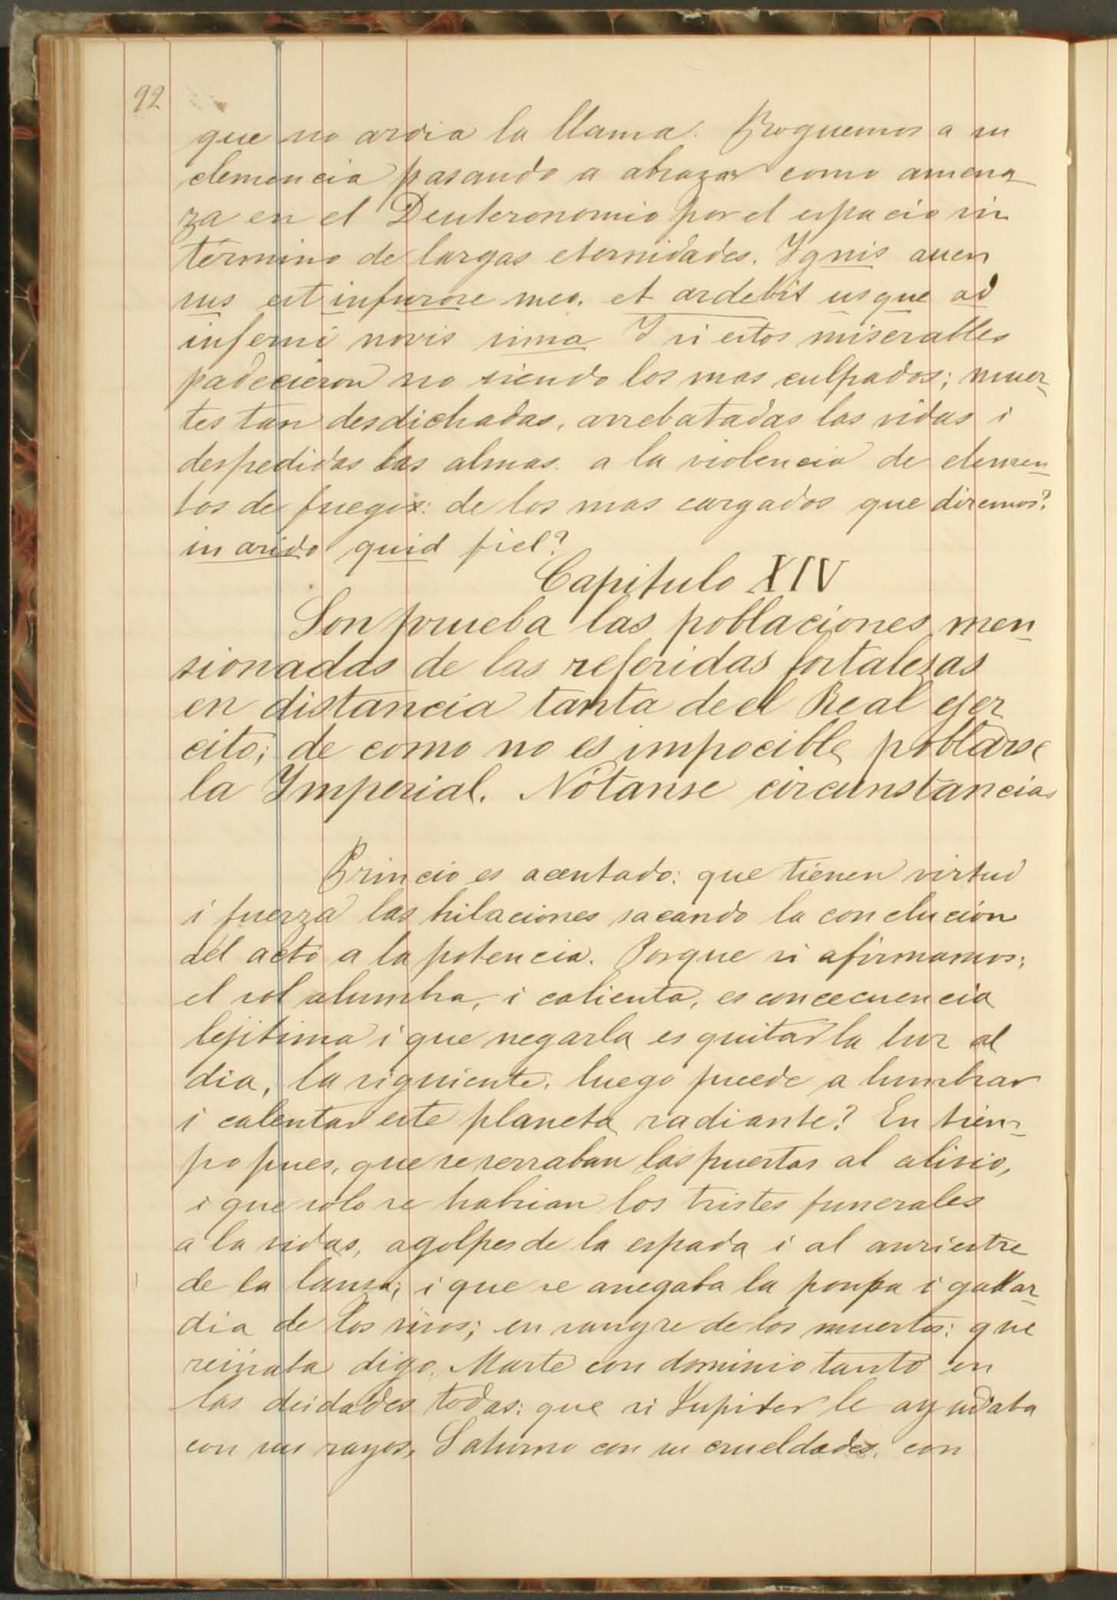 92
que no ardia la llama. Roguemos a su
clemencia pasando a abrazar como amena
za en el Deuteronomio por el espacio sin
término de largas eternidades. Ignis auen
sus est infurore meo. et ardebit usque ad
inferni novis sima I si estos miserables
padecieron no siendo los mas culpados; muer-
tes tan desdichadas, arrebatadas las vidas i
despedidas las almas. a la violencia de elemen-
tos de fuegos: de los mas cargados que diremos?
in arido quid fiel?
Capitulo XIV
Son prueba las poblaciones men-
sionadas de las referidas fortalesas
en distancia tanta de el Real ejer
cito; de como no es impocible poblarse
la Imperial. Nótanse circunstancias
Princio es acentado: que tienen virtud
i fuerza las hilaciones sacando la conclucion
del acto a la potencia. Porque si afirmamos;
el sol alumbra, i calienta, es concecuencia
lejitima i que negarla es quitar la luz al
dia, la siguiente. luego puede a lumbrar
i calentar este planeta radiante? En tiem-
po pues, que se serraban las puertas al alivio,
i que solo se habrian los tristes funerales
a la vidas, a golpes de la espada i al
de la lanza; i que se anegaba la pompa i gallar-
dia de los vivos; en sangre de los muertos: que
reinaba digo. Marte con dominio tanto en
las deidades todas: que si Jupiter le ayudaba
con sus rayos, Saturno con su crueldades, con